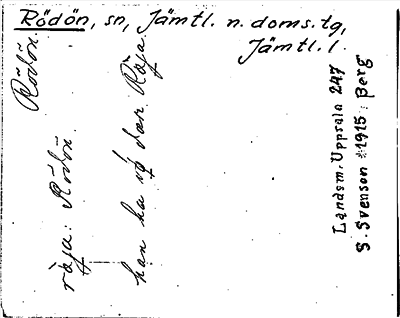 Rödön, sn, Jämtl. n. doms. tg,
Jämtl. l.
Rödön.
räja: Rödön
han ha vq̊ dar Räja
Landsm. Uppsala 247
S. Svenson *1915: Berg